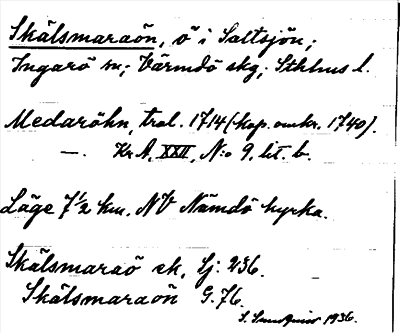 Skälsmaraön, ö i Saltsjön;
Ingarö sn; Värmdö skg; Sthlms l.
Medaröhn, trol. 1714 (kop. omkr. 1740).
—. Kr A, XXII, N:o 9. lit. b.
Läge 7 1/2 km. NV Nämdö kyrka.
Skälsmaraö ek, Lj: 236.
Skälsmaraön G. 76.
S. Sundqvist 1936.